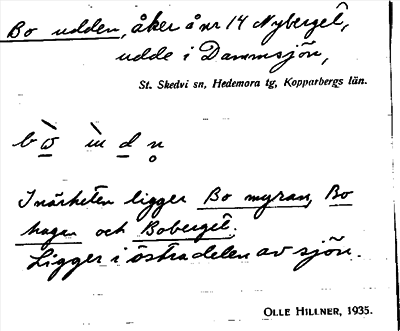 Bo udden, åker å nr 14 Nyberget,
udde i Dammsjön,
St. Skedvi sn, Hedemora tg, Kopparbergs län.
I närheten ligger Bo myran, Bo
hagen och Boberget.
Ligger i östra delen av sjön.
OLLE HILLNER, 1935.